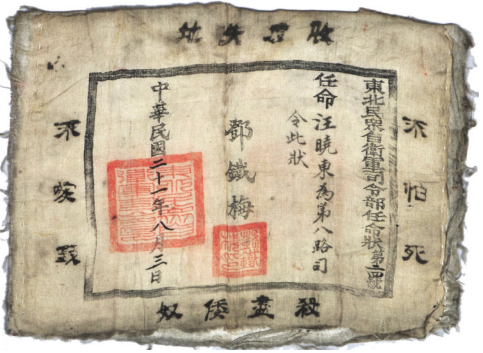 收復失地
不怕死
東北民眾自衛軍司令部任命狀第號
任命汪曉東為第八路司
令此狀
鄧鐵梅
中華民國二十一年八月三日
不
殺盡倭奴